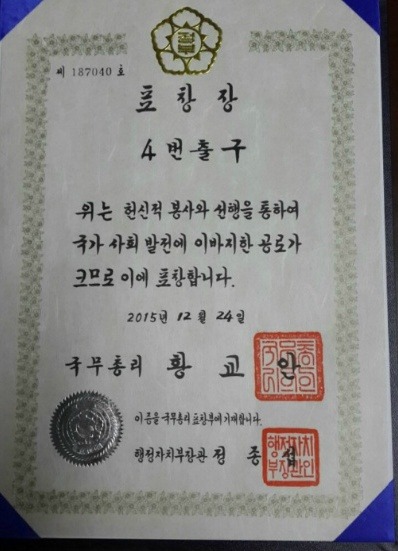 정부
제 187040 호
표창장
4번출구
위는 헌신적 봉사와 선행을 통하여
국가 사회 발전에 이바지한 공로가
크므로 이에 표창합니다.
2015년 12월 24일
국무총리 황교안
이 증을 국무총리 표창부에 기재합니다.
행정자치부장관 정종섭
행정자치
부장관인